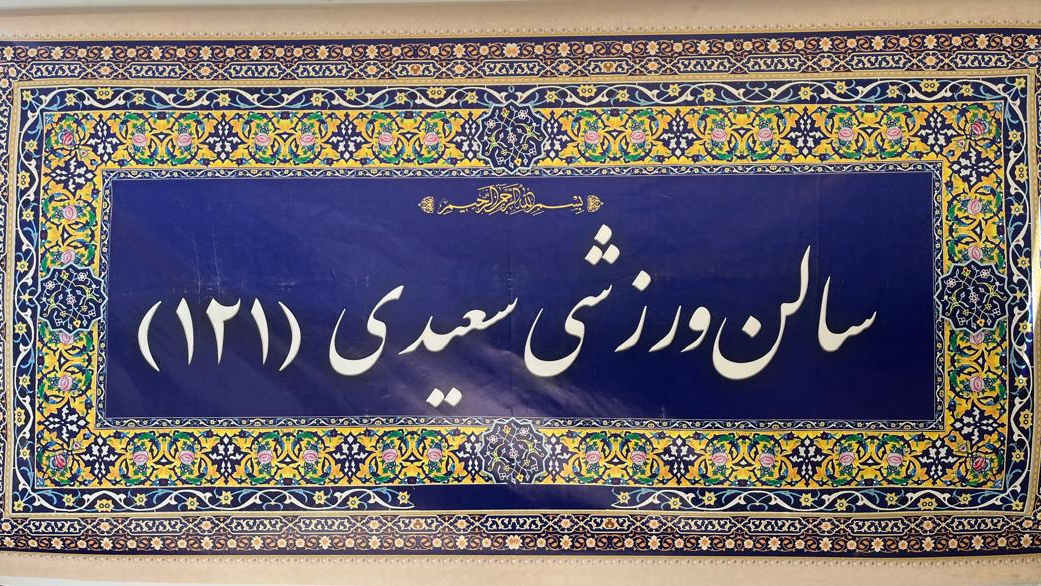 بسم الله الرحمن الرحیم
سالن ورزشی سعیدی (۱۲۱)